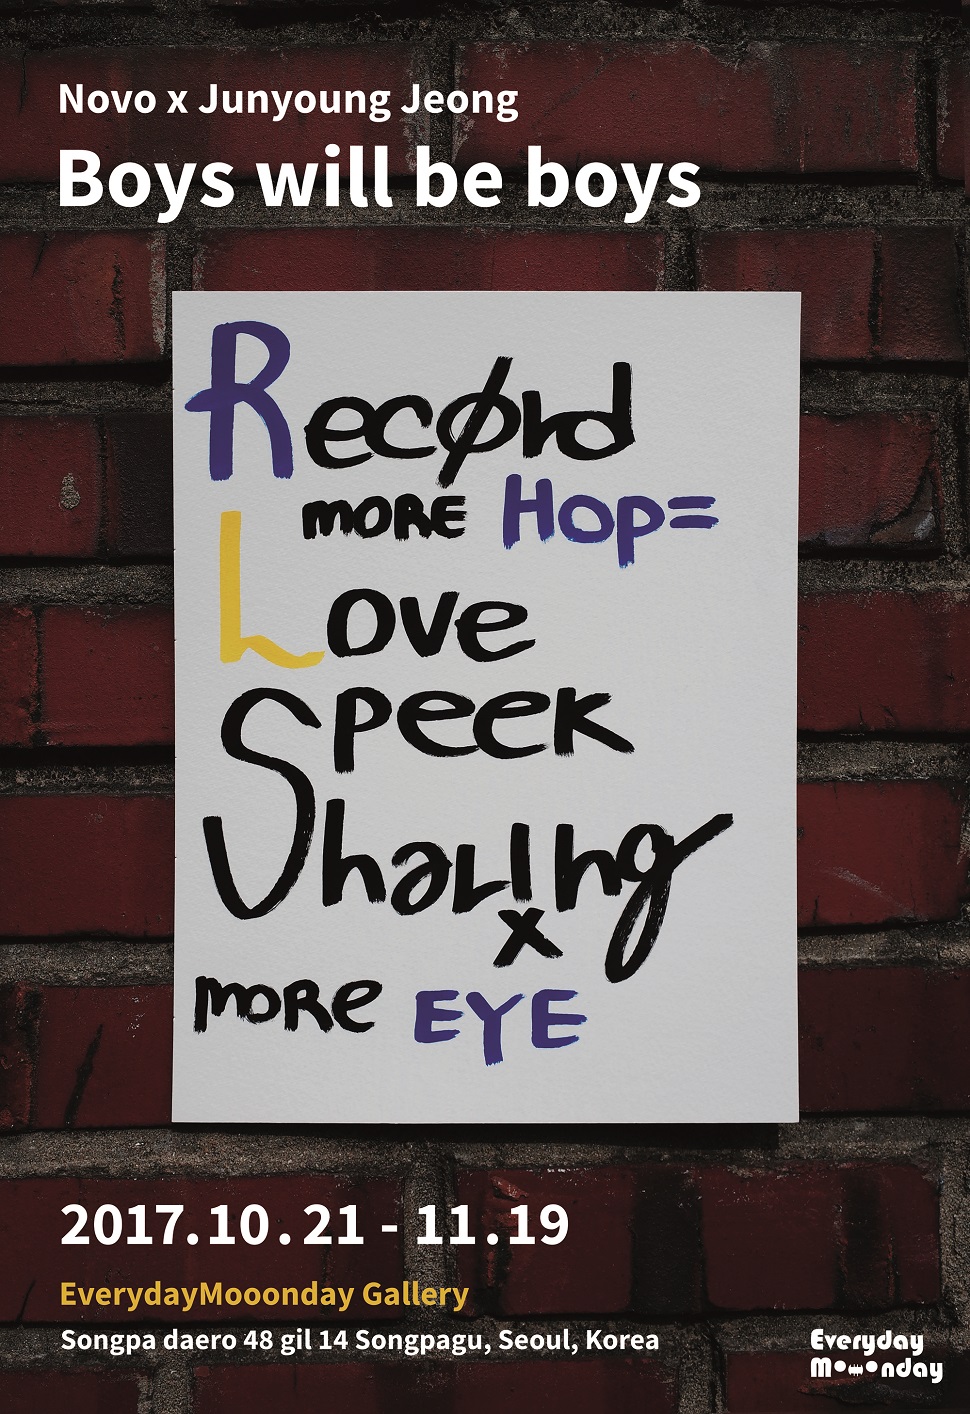 Novo x Junyoung Jeong
Boys will be boys
Recørd
MORE HOP=
Love
SPEEK
Sharing
x
more EYE
2017.10.21 - 11.19
EverydayMooonday Gallery
Songpa daero 48 gil 14 Songpagu, Seoul, Korea
Everyday
Mooonday